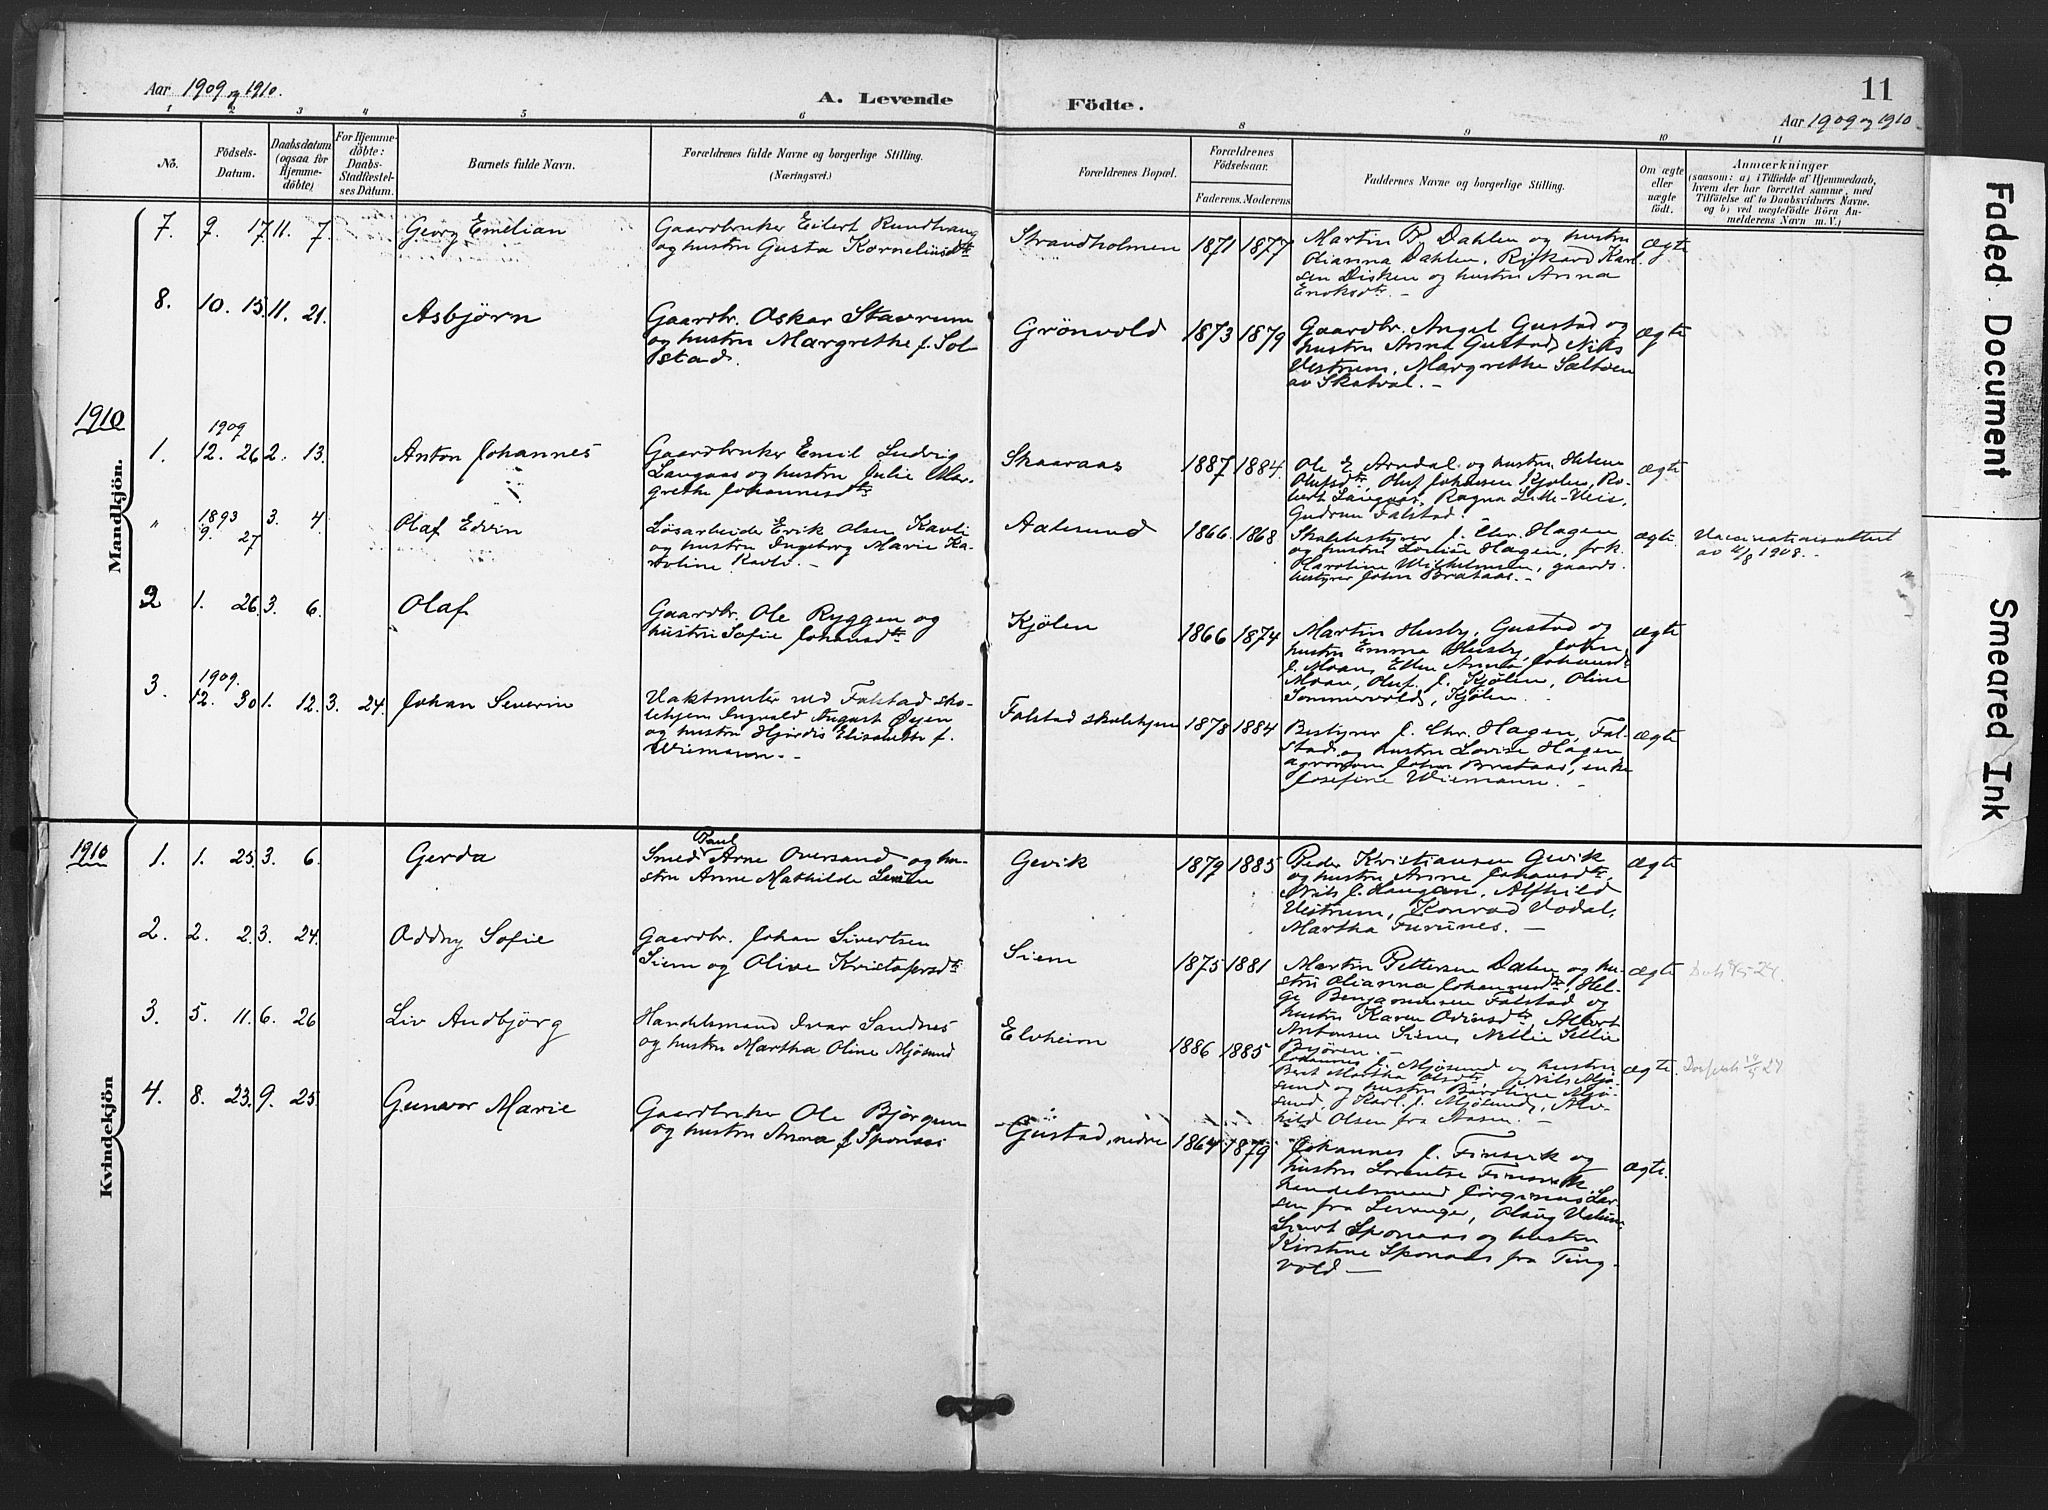 Aar 1909 og 1910.
A. Levende
Födte.
11
Aar 1909 og 1910
1 2 3 4 5 6 8 9 10 11
No.
Födsels-
Datum.
Daabsdatum
(ogsaa for
Hjemme-
döbte)
For Hjemme-
döbte:
Daabs-
Stadfæstel-
ses Datum.
Barnets fulde Navn.
Forældrenes fulde Navne og borgerlige Stilling.
(Næringsvei.)
Forældrenes Bopæl.
Forældrenes
Födselsaar.
Faderens. Moderens
Faddernes Navne og borgerlige Stilling.
Om ægte
eller
uægte
födt.
Anmærkninger
(saasom: a) i Tilfælde af Hjemmedaab,
hvem der har forrettet samme, med
Tilföielse af to Daabsvidners Navne.
og b) ved uægtefödte Börn An-
melderens Navn m. V.)
Mandkjön.
7. 9. 17 11. 7. Georg Emilian
Gaardbruker Eilert Rundhaug
og hustru Gusta Kornelíusdtr
Strandholmen 1871 1877
Martin B. Dahlen og hustru
Olianna Dahlen, Rijkard Karl
sen Disken og hustru Anna
Enoksdtr. -
Ægte
8. 10. 15. 11. 21. Asbjörn
Gaardbr. Oskar Stavrum
og hustru Margrethe f. Sol
stad.
Grönvold 1873 1879
Gaardbr. Angel Gustad og
hustru Anna Gustad, Nils
Vestrum, Margrethe Saltven
av Skatval. -
ægte
1910
1909
1. 12. 26 2. 13. Anton Johannes
Gaardbruker Emil Ludvig
Langaas og hustru Julie Mar-
grethe Johannesdtr
Skaaraas 1887 1884
Ole E. Arndal og hustru Helene
Olufsdtr, Oluf Johansen Kjölen, Ro-
bert Langaas, Ragna Lille-Veis,
Gudrun Falstad.
ægte
1893
" 9. 27 3. 4. Olaf Edvin
Løsarbeide Erik Olsen Kavli
og hustru Ingeborg Marie Ka-
roline Kavli. -
Aalesund 1866 1868
Skolebestyrer J. Chr. Hagen
og hustru Lovise Hagen, frk.
Haroline Wilhelmsen, gaards
bestyrer John Brataas. -
ægte.
Vaccinationsattest
av 11/8 1908. -
2 1. 26. 3. 6. Olaf
Gaardbr. Ole Ryggen og
hustru Sofie Johansdtr
Kjölen 1866 1874
Martin Husby, Gustad og
hustru Emma Husby, John
J. Moan, Ellen Anna Johansdtr
Moan, Oluf J. Kjölen, Oline
Sommervold, Kjölen. -
ægte
1909.
3. 12. 30 1. 12. 3. 24. Johan Severin
Vaktmester ved Falstad sko-
lehjem Ingvald August Øyen
og hustru Hjørdis Elisabeth f.
Wiemann. -
Falstad skolehjem 1878 1884
Bestyrer J. Chr. Hagen, Fal-
stad og hustru Lovise Hagen,
agronom John Brataas, enke
Josefine Wiemann. -
ægte
Kvindekjön
1910
1. 1. 25. 3. 6. Gerda
Paul
Smed Arne Oversand og hu-
stru Anne Mathilde
Gevik 1879 1885
Peder Kristiansen Gevik
og hustru Anne Johansdtr,
Nils J. Haugan, Alfhild
Vestrum, Konrad Vodal,
Martha Furunes. -
ægte
2. 2. 2. 3. 24. Oddny Sofie
Gaardbr. Johan Sivertsen
Siem og Olive Kristofersdtr
Siem 1875 1881
Martin Pettersen Dalen og hu-
stru Olianna Johannesdtr, Hel-
ge Benjaminsen Falstad og
hustru Karen Odinsdtr, Albert
Antonsen Siem, Nellie Sellie
Björen. -
ægte
3. 5. 11. 6. 26 Liv Audbjörg
Handelsmand Ivar Sandnes
og hustru Martha Oline Mjösund
Elvheim 1886 1885
Johannes J. Mjösund og hustru
Beret Martha Olsdtr, Nils Mjö-
sund og hustru Baroline Mjö-
sund, og Karl J. Mjösund, Alv-
hild Olsen fra Aasen. -
ægte.
4. 8. 23. 9. 25. Gunvor Marie
Gaardbruker Ole Björgum
og hustru Anna f. Sponaas
Gustad, nedre 1864 1879
Johannes J. Finsvik og
hustru Lorentse Finsvik,
handelsmand Jørginus Lar
sen fra Levanger, Olaug
Sivert Sponaas og hustru
Kirstine Sponaas fra Ting-
vold -
ægte.
Faded Document
Smeared Ink